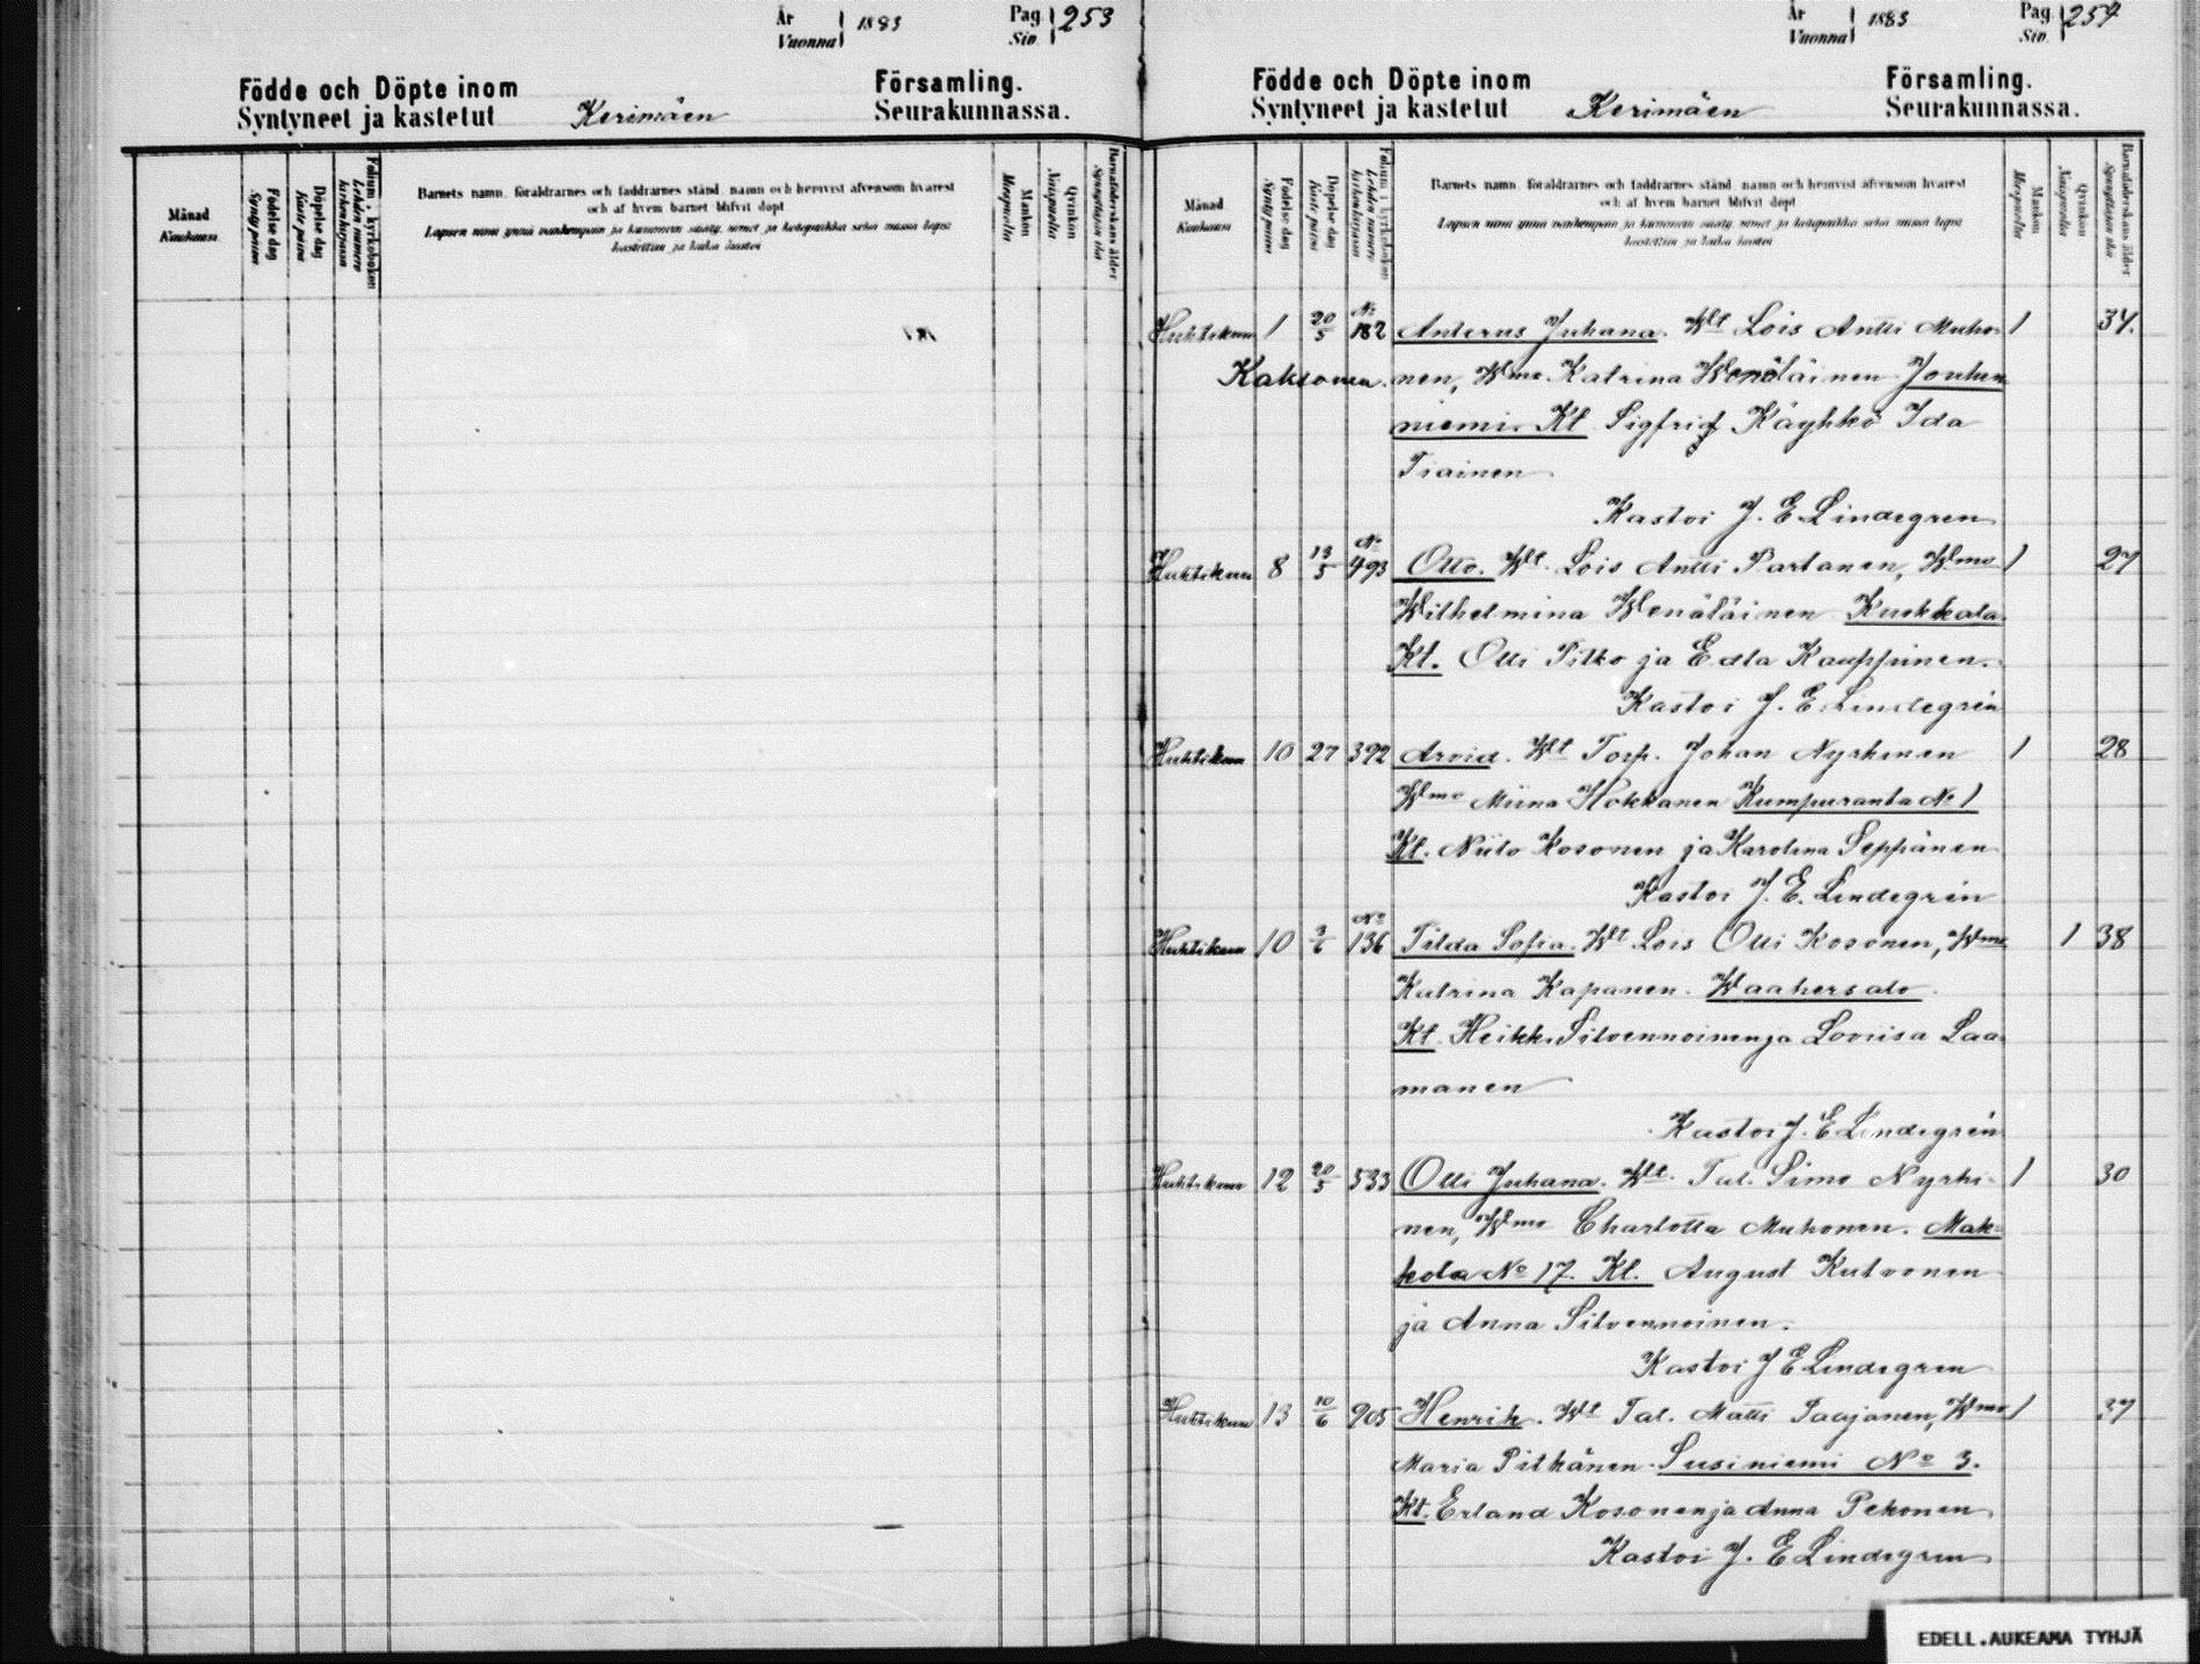 År
Vuonna
1883
Pag.
Siv.
253
Födde och Döpte inom
Syntyneet ja kastetut
Kerimäen
Församling.
Seurakunnassa.
Månad
Kuukausi
Födelse dag
Synty päivä
Döpelse dag
Kaste päivä
Folium i kyrkoboken
Lehden numero kirkonkirjassa
Barnets namn, föräldrarnes och faddrarnes stånd, namn och hemvist äfvensom hvarest
och af hvem barnet blifvit döpt
Mankön
Miespuolia
Qvinkön
Naispuolia
Barnaföderskans ålder
Synnyttäjän ikä
År
Vuonna
1883
Pag.
Siv.
254
Födde och Döpte inom
Syntyneet ja kastetut
Kerimäen
Församling.
Seurakunnassa.
Månad
Kuukausi
Födelse dag
Synty päivä
Döpelse dag
Kaste päivä
Folium i kyrkoboken
Lehden numero kirkonkirjassa
Barnets namn, föräldrarnes och faddrarnes stånd, namn och hemvist äfvensom hvarest
och af hvem barnet blifvit döpt
Mankön
Miespuolia
Qvinkön
Naispuolia
Barnaföderskans ålder
Synnyttäjän ikä
Huhtikuu 1 20/5 No 182 Anterus Juhana. Wlt Lois Antti Muho- 1 34.
Kaksonen. nen, Wmo Katrina Wenäläinen Jouhen
niemi Kl Sigfrid Käyhkö Ida
Tiainen
Kastoi J. E Lindegren
Huhtikuu 8 13/5 No 493 Otto. Wlt. Lois Antti Partanen, Wmo 1 27
Wilhelmina Wenäläinen Kuokkala
Kl. Olli Pitko ja Edla Kauppinen.
Kastoi J. E. Lindegrén
Huhtikuu 10 27 392 Arvid. Wlt Torp. Johan Nyrhinen 1 28
Wmo Miina Hokkanen Kumpuranta No 1
Kl. Niilo Kosonen ja Karolina Seppänen
Kastoi J. E. Lindegrén
Huhtikuu 10 3/6 No 136 Tilda Sofia. Wlt Lois Olli Kosonen, Wmo 1 38
Katrina Kapanen. Waahersalo.
Kl. Heikki Silvennoinen ja Loviisa Laa
manen
Kastoi J. E Lindegrén
Huhtikuu 12 20/5 533 Olli Juhana. Wlt. Tal. Simo Nyrhi- 1 30
nen, Wmo Charlotta Muhonen. Mak-
kola No 17. Kl. August Kutvonen
ja Anna Silvennoinen.
Kastoi J E Lindegren
Huhtikuu 13 10/6 905 Henrik. Wlt Tal. Matti Paajanen, Wmo 1 37
Maria Pitkänen. Susiniemi No 3.
Kl. Erland Kosonen ja Anna Pekonen
Kastoi J. E Lindegren
EDELL.AUKEAMA TYHJÄ